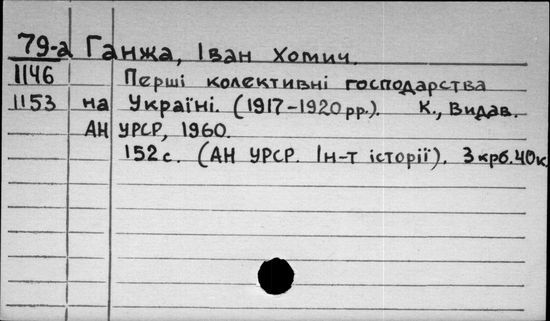 79-а Ганжа, Іван Хомич.
1146 Перші колективні господарства
1153 на Україні. (1917-1920 рр.). К., Видав.
АН УРСР, 1960.
152 с. (АН УРСР. Ін-т історії). 3 крб. 40 к.